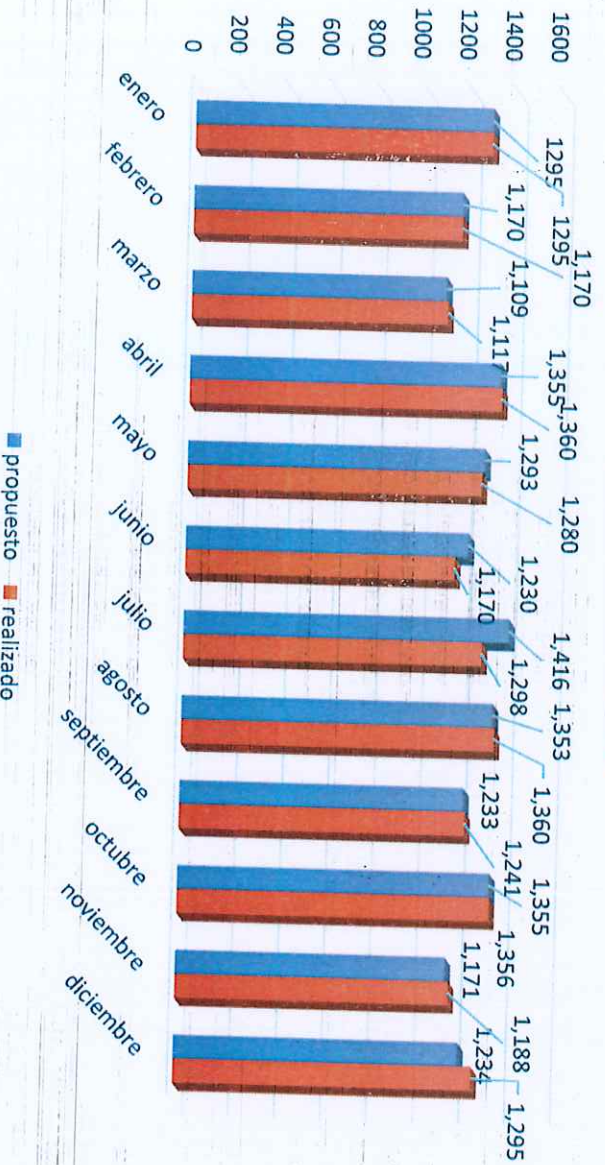 1600
1400
1200
1000
800
600
400
200
0
1295
1295
1,170
1,170
1,109
1,117
1,355
1,360
1,293
1,280
1,230
1,170
1,416
1,298
1,353
1,360
1,233
1,241
1,355
1,356
1,171
1,188
1,234
1,295
enero
febrero
marzo
abril
mayo
junio
julio
agosto
septiembre
octubre
noviembre
diciembre
propuesto realizado